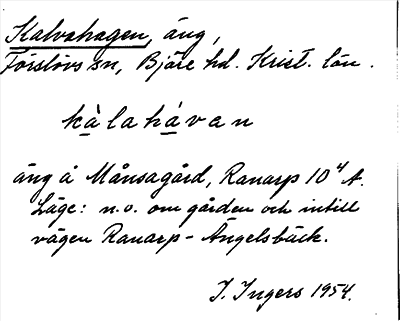 Kalvahagen, äng,
Förslövs sn, Bjäre hd. Krist. län.
kàlahávan
äng å Månsagård, Ranarp 10⁴ A.
Läge: n.o. om gården och intill
vägen Ranarp - Ängelsbäck.
I. Ingers 1954.